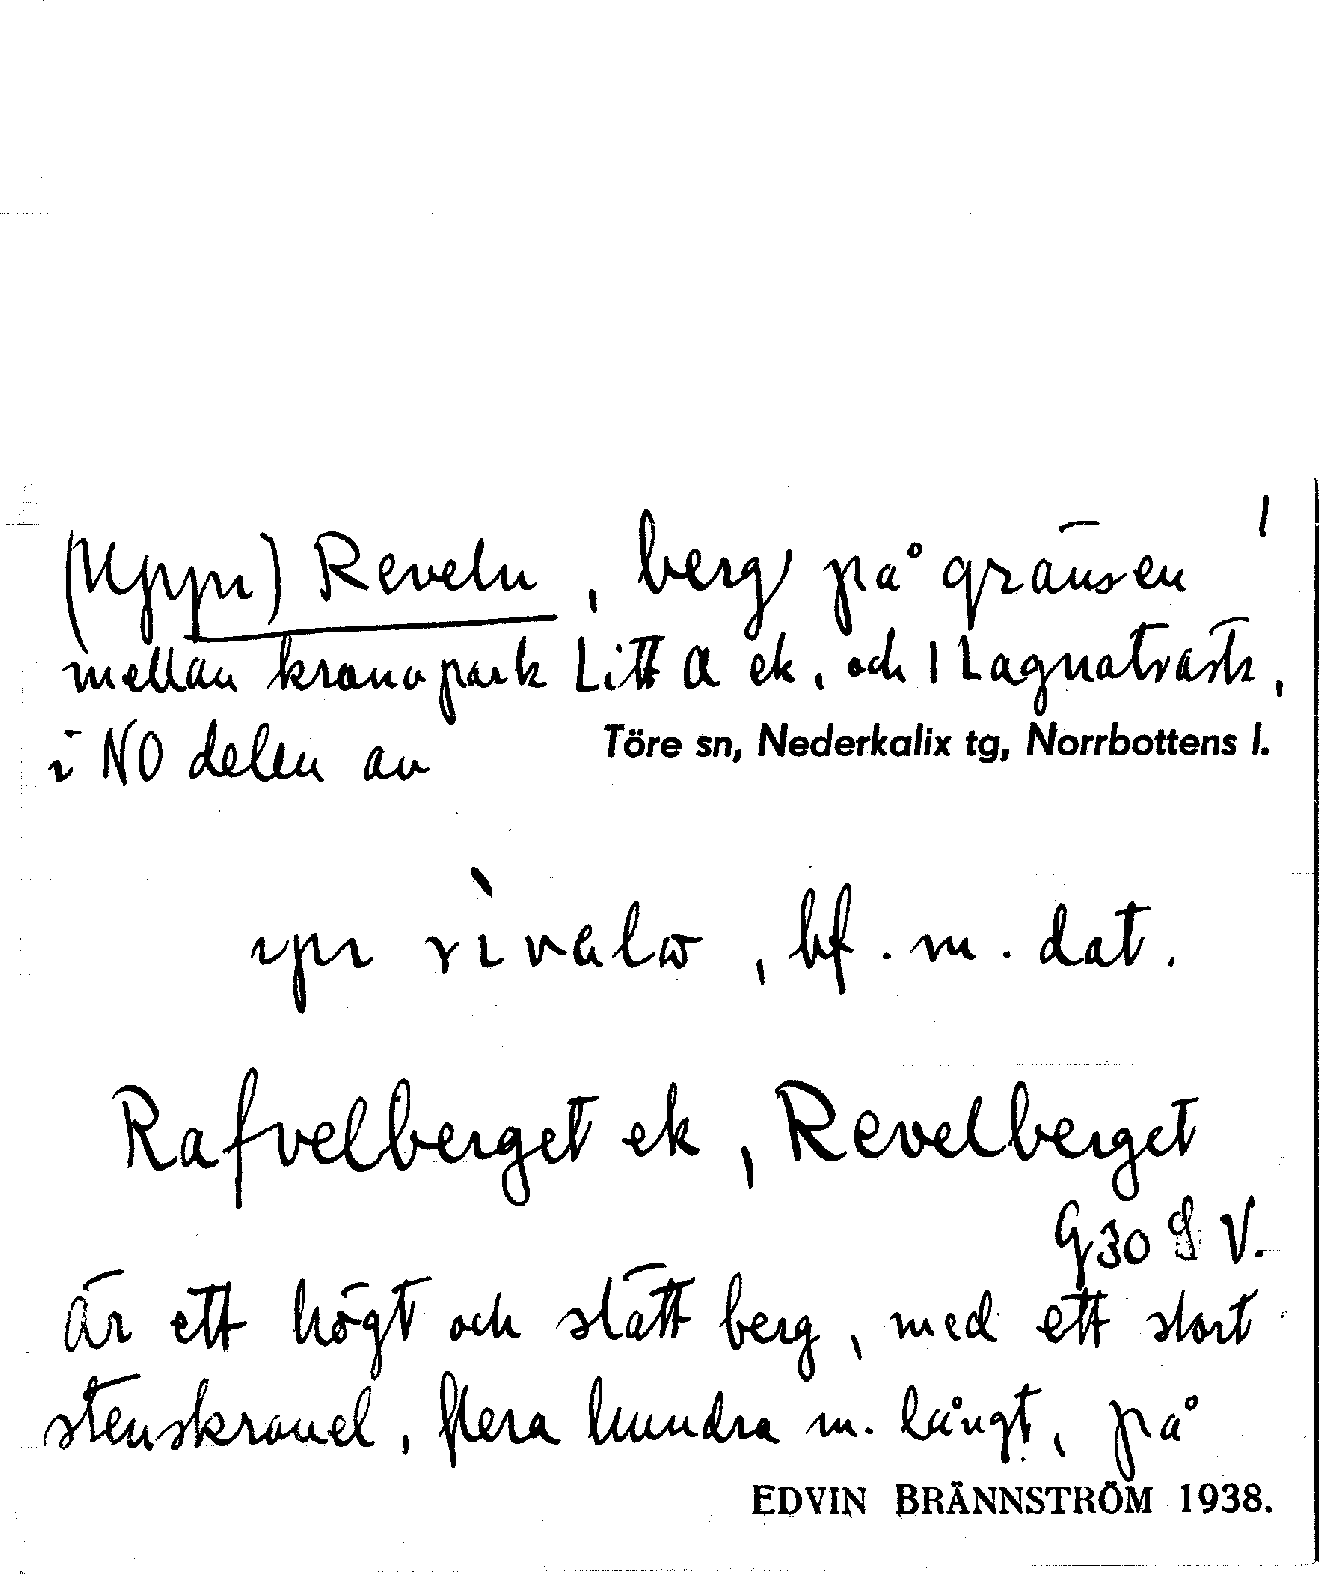 (Uppi) Reveln, berg på gränsen
mellan kronopark Litt A ek. och Lagnaträsk,
i NO delen av Töre sn, Nederkalix tg, Norrbottens l.
, bf. m. dat.
Rafvelberget ek, Revelberget
G30 S V.
Är ett högt och slätt berg, med ett stort
stenskravel, flera hundra m. långt, på
EDVIN BRÄNNSTRÖM 1938.